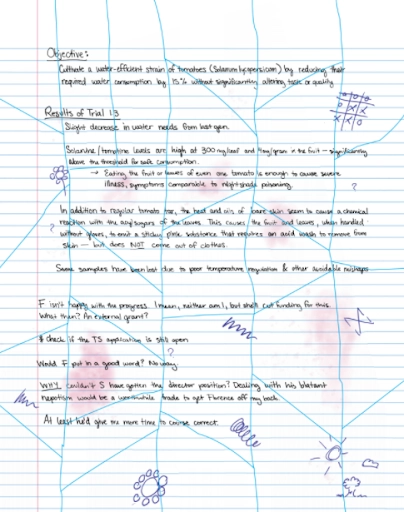 Objective:
Cultivate a water-efficient strain of tomatoes (Solanum lycopersicum) by reducing their
required water consumption by 15% without significantly altering taste or quality
Results of Trial 13
Slight decrease in water needs from last gen.
Solanine / tomatine levels are high at 300 mg/leaf and in the fruit — significantly
above the threshold for safe consumption.
→ Eating the fruit or leaves of even one tomato is enough to cause severe
illness, symptoms comparable to nightshade poisoning.
In addition to regular tomato tar, the heat and oils of bare skin seem to cause a chemical
reaction with the acylsugars of the leaves. This causes the fruit and leaves, when handled
without gloves, to emit a sticky, pink substance that requires an acid wash to remove from
skin — but does NOT come out of clothes.
Some samples have been lost due to poor temperature regulation & other avoidable mishaps
F isn't happy with the progress. I mean, neither am I, but she'll cut funding for this.
What then? An external grant?
check if the TS application is still open
Would F put in a good word? No way
WHY couldn't S have gotten the director position? Dealing with his blatant
nepotism would be a worthwhile trade to get Florence off my back.
At least he'd give me more time to course correct.